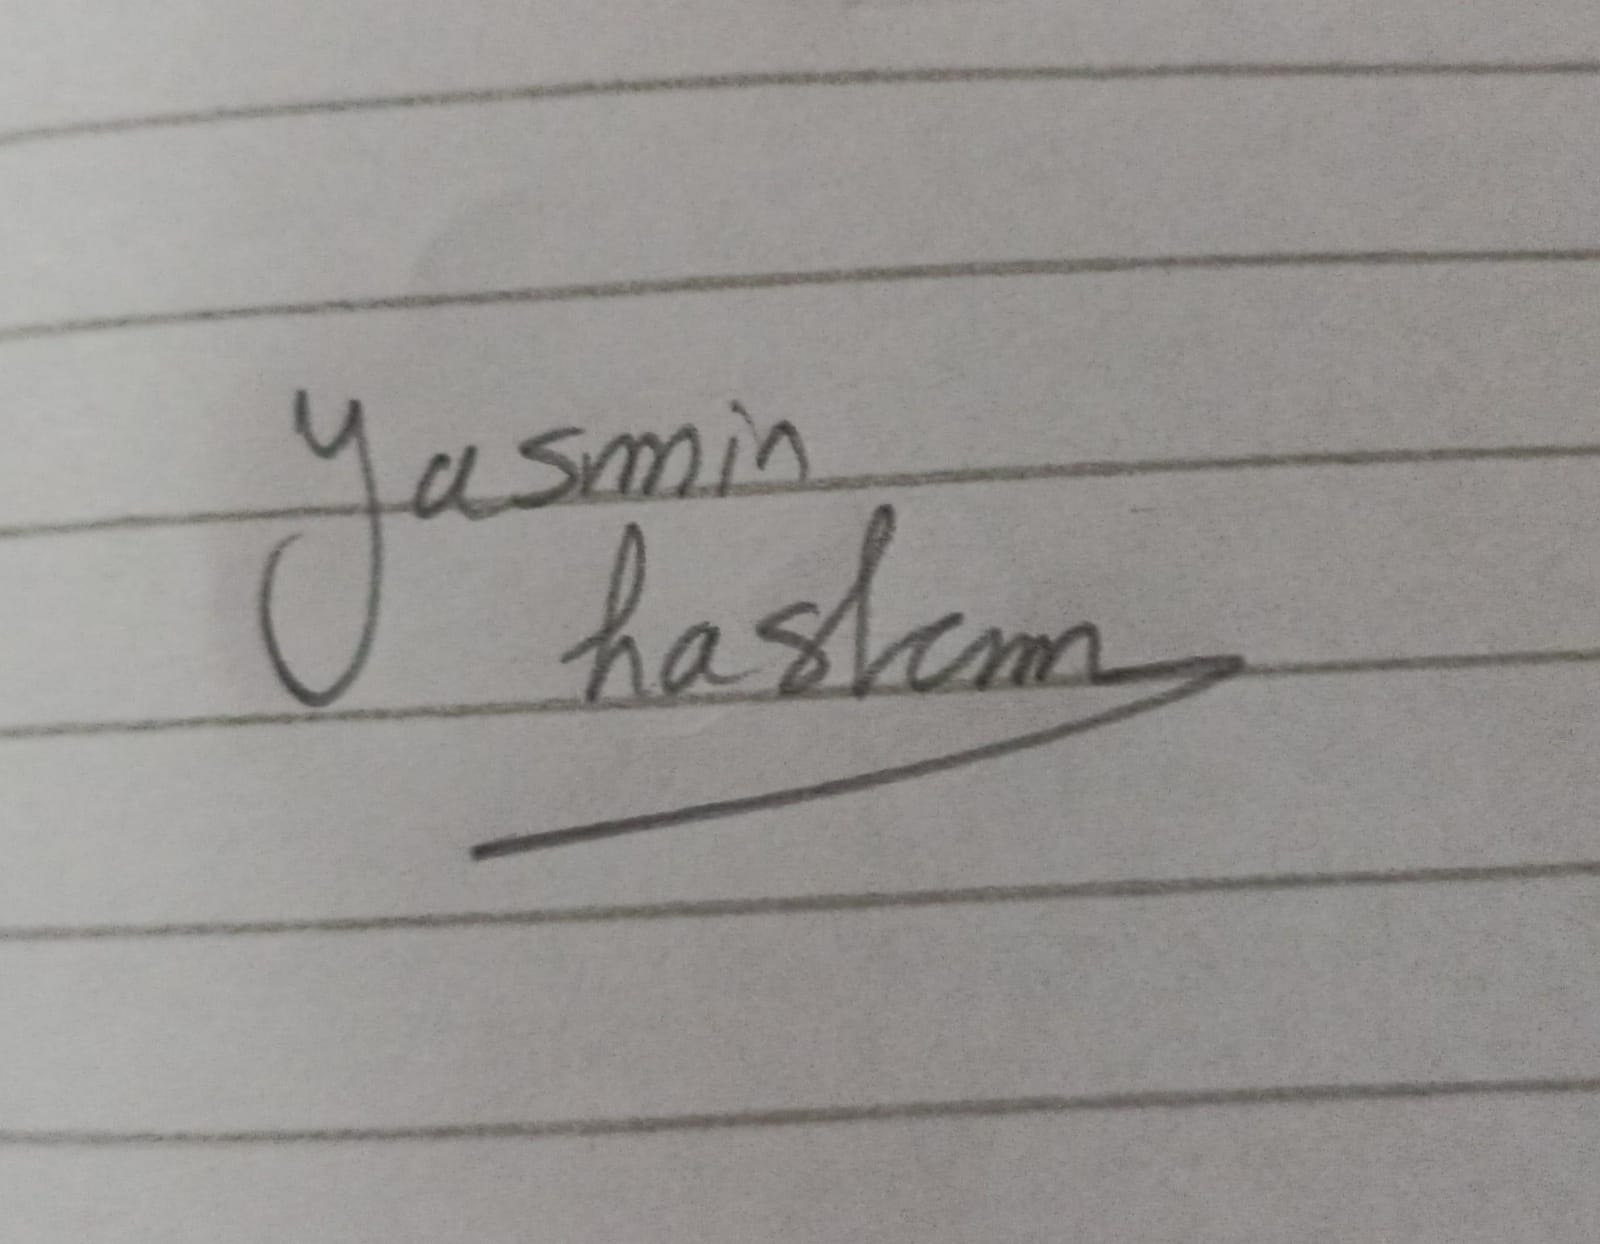 Yasmin
hashem